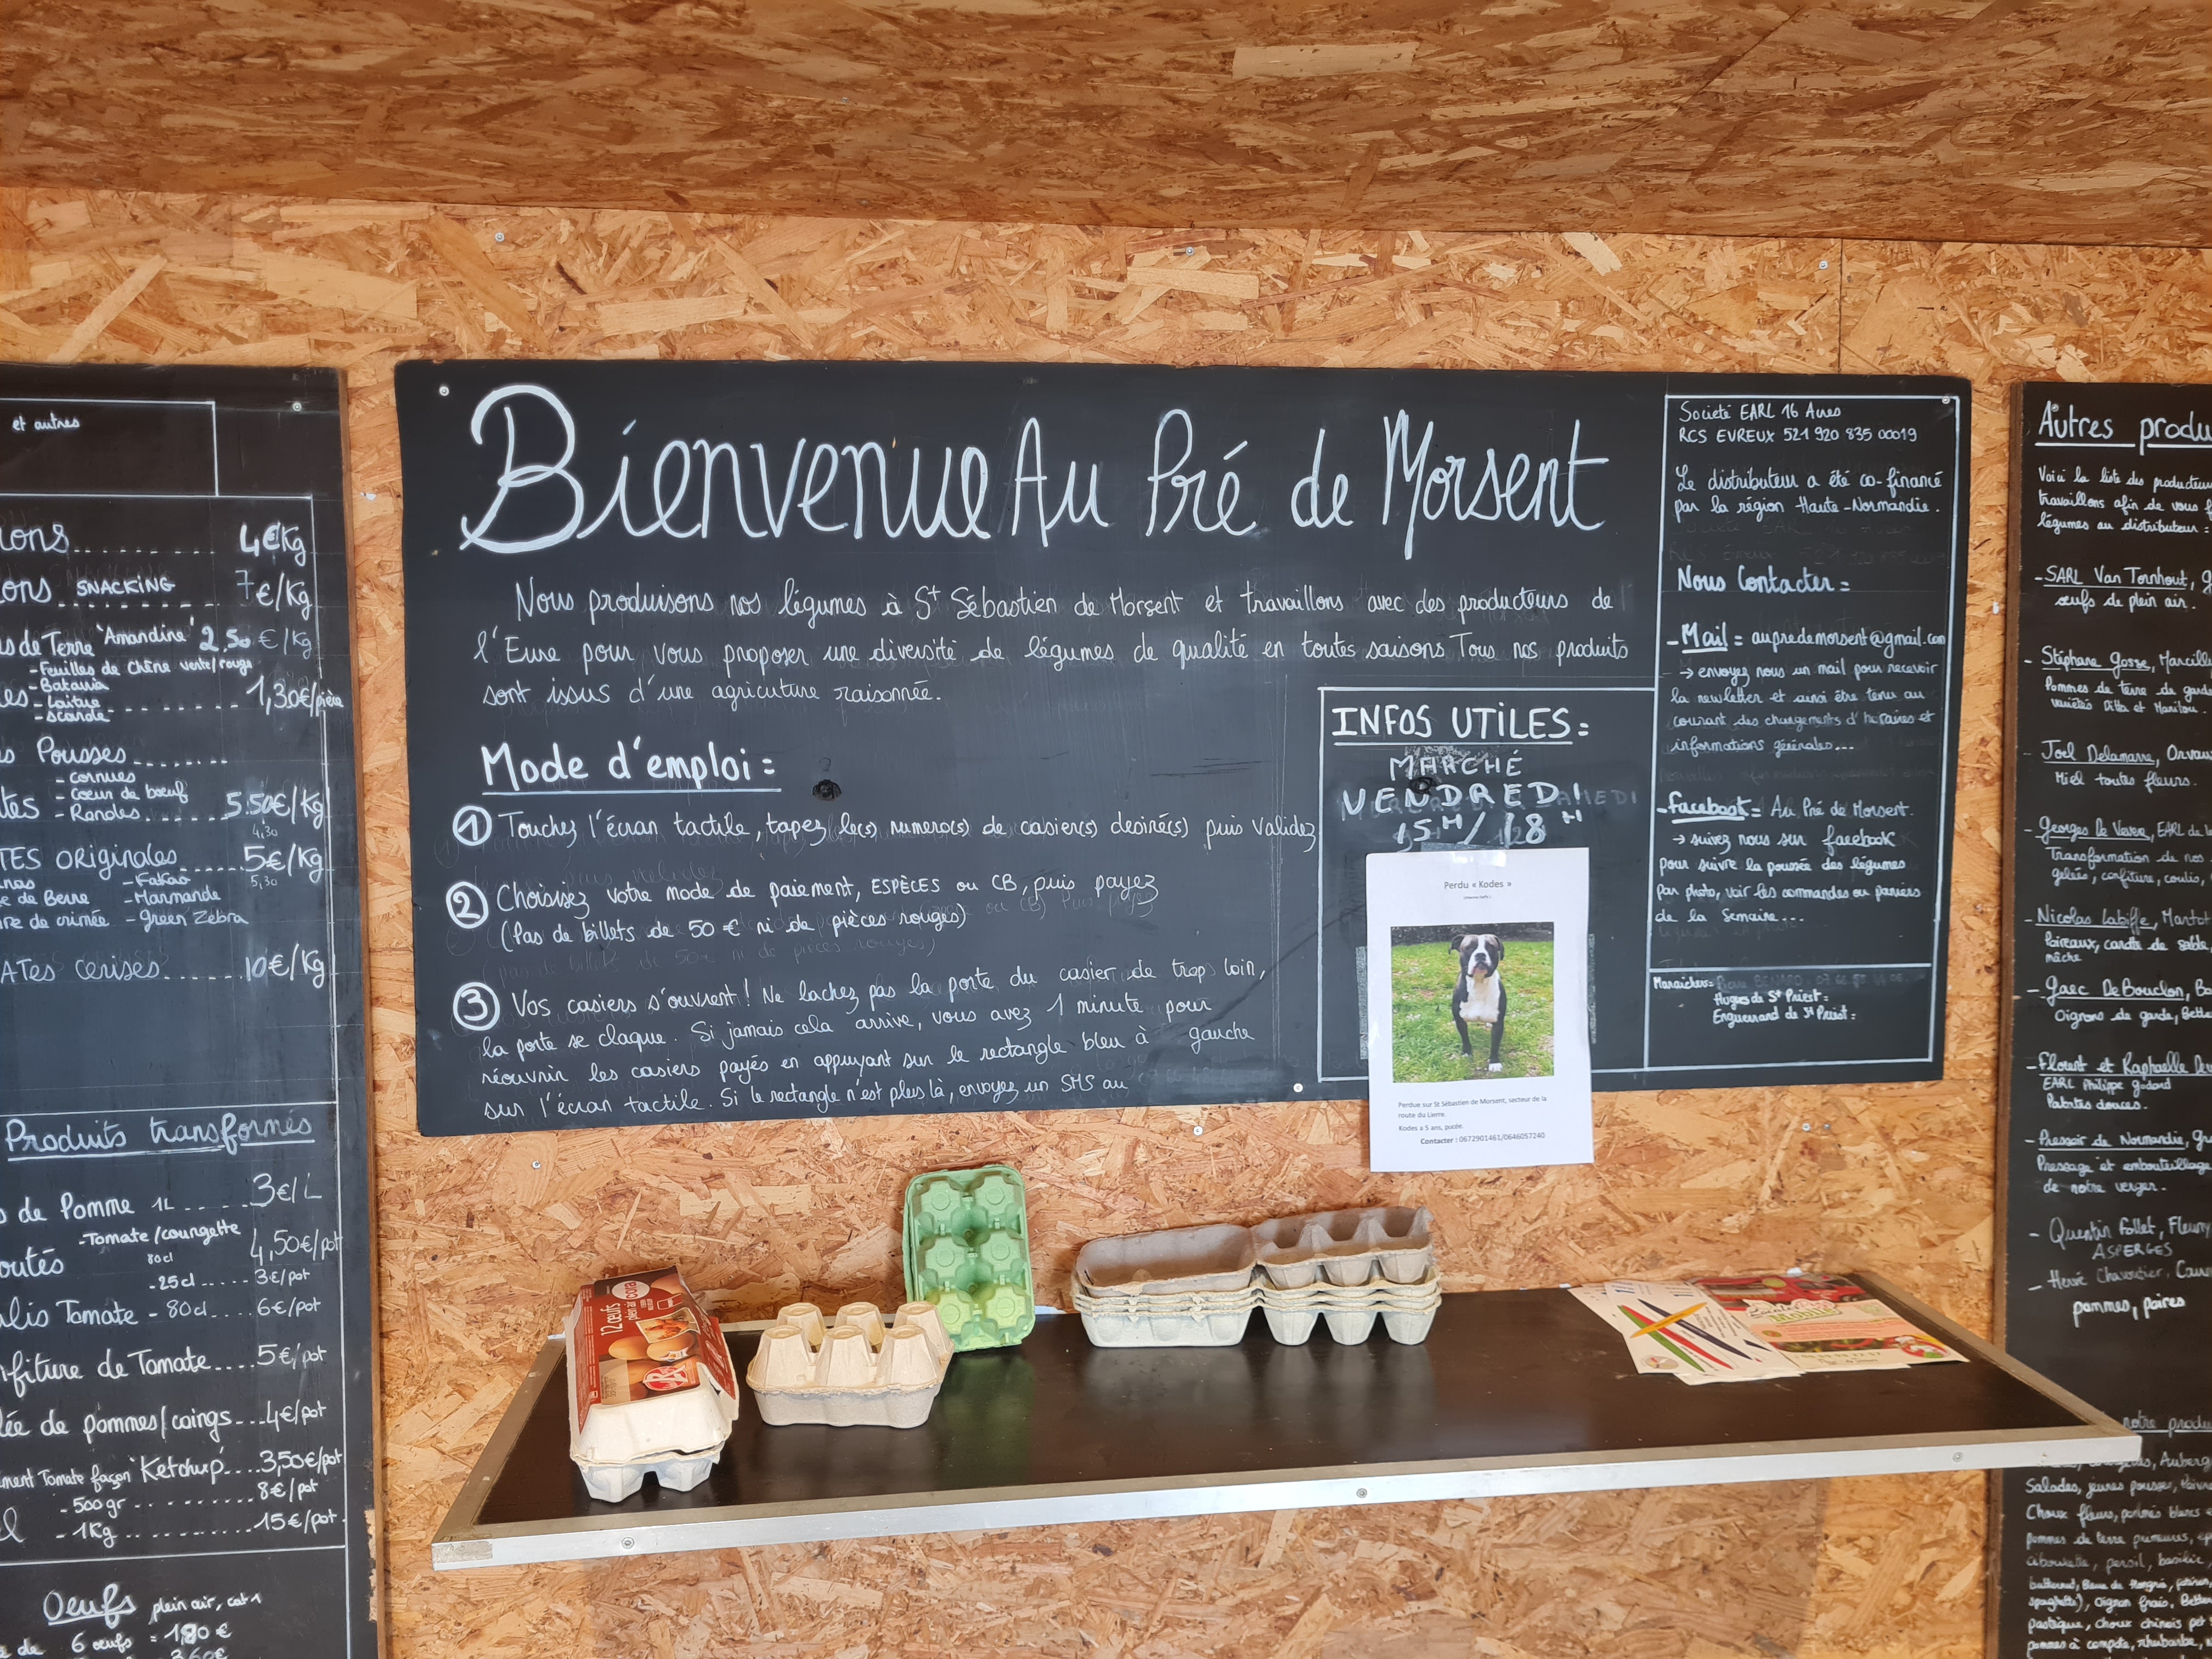 et autres
4€/Kg
ons SNACKING 7€/Kg
de Terre "Amandine" 2,50 €/Kg
- Feuilles de Chêne verte/rouge
- Batavia
- Laitue
- Scarole
1,30€/pièce
Pousses
- cornues
- Coeur de boeuf
- Rondes
5.50€/Kg
4,30
TES ORiginales 5€/Kg
5,30
- Kakao
de Berre - Marmande
re de crimée - green Zebra
ATes cerises 10€/Kg
Produits transformés
de Pomme 1L 3€/L
- Tomate/courgette
80cl 4,50€/pot
outés
- 25cl 3€/pot
lis Tomate - 80cl 6€/pot
fiture de Tomate 5€/pot
lée de pommes/coings 4€/pot
ment Tomate façon "Ketchup" 3,50€/pot
- 500gr 8€/pot
- 1Kg 15€/pot
Oeufs plein air, cat 1
de 6 oeufs = 1,80 €
3,60€
Bienvenue Au Pré de Morsent
Nous produisons nos légumes à St Sébastien de Morsent et travaillons avec des producteurs de
l'Eure pour vous proposer une diversité de légumes de qualité en toutes saisons Tous nos produits
sont issus d'une agricuture raisonnée.
Mode d'emploi :
1 Touchez l'écran tactile, tapez le(s) numero(s) de casier(s) desiré(s) puis validez
2 Choisisez votre mode de paiement, ESPÈCES ou CB, puis payez
(Pas de billets de 50 € ni de pièces rouges)
3 Vos casiers s'ouvrent ! Ne lachez pas la porte du casier de trop loin,
la porte se claque. Si jamais cela arrive, vous avez 1 minute pour
réouvrir les casiers payés en appuyant sur le rectangle bleu à gauche
sur l'écran tactile. Si le rectangle n'est plus là, envoyez un SMS au
INFOS UTILES :
MARCHÉ
VENDREDI
15H / 18H
Perdu « Kodes »
Perdue sur St Sébastien de Morsent, secteur de la
route du Lierre.
Kodes a 5 ans, pucée.
Contacter : 0672901461/0646057240
Societé EARL 16 Acres
RCS EVREUX 521 920 835 00019
Le distributeur a été co-financé
par la région Haute-Normandie.
Nous Contacter :
- Mail = aupredemorsent@gmail.com
→ envoyez nous un mail pour recevoir
la newletter et ainsi être tenu au
courant des changements d'horaires et
informations générales...
- Facebook = Au Pré de Morsent.
→ suivez nous sur facebook
pour suivre la poussée des légumes
par photo, voir les commandes ou paniers
de la Semaine...
Maraichers =
Hugues de St Priest :
Enguerrand de St Priest :
12 œufs
plein air
cora
Autres produ
Voici la liste des producteurs
travaillons afin de vous
légumes au distributeur :
- SARL Van Tornhout,
œufs de plein air.
- Stéphane Gosse, Marcill
Pommes de terre de garde
variétés Ditta et Manitou.
- Joel Delamare,
Miel toutes fleurs.
- Georges De Vever, EARL de
Transformation de nos
gelées, confiture, coulis,
- Nicolas Labiffe,
Poireaux, carotte de sable,
mâche
- Gaec De Bouclon,
Oignons de garde, Bette
- Florent et Raphaelle De
EARL Philippe godard
Patates douces.
- Pressoir de Normandie,
Pressage et embouteillage
de notre verger.
- Quentin Follet, Fleury
ASPERGES
- Hervé
pommes, poires
notre produ
Auberg
Salades, jeunes pousses,
Choux fleurs, panais blancs
pommes de terre primeures,
ciboulette, persil, basilic
spaghetti), Oignon frais, Bette
pastèque, choux chinois
pommes à compote, rhubarbe,